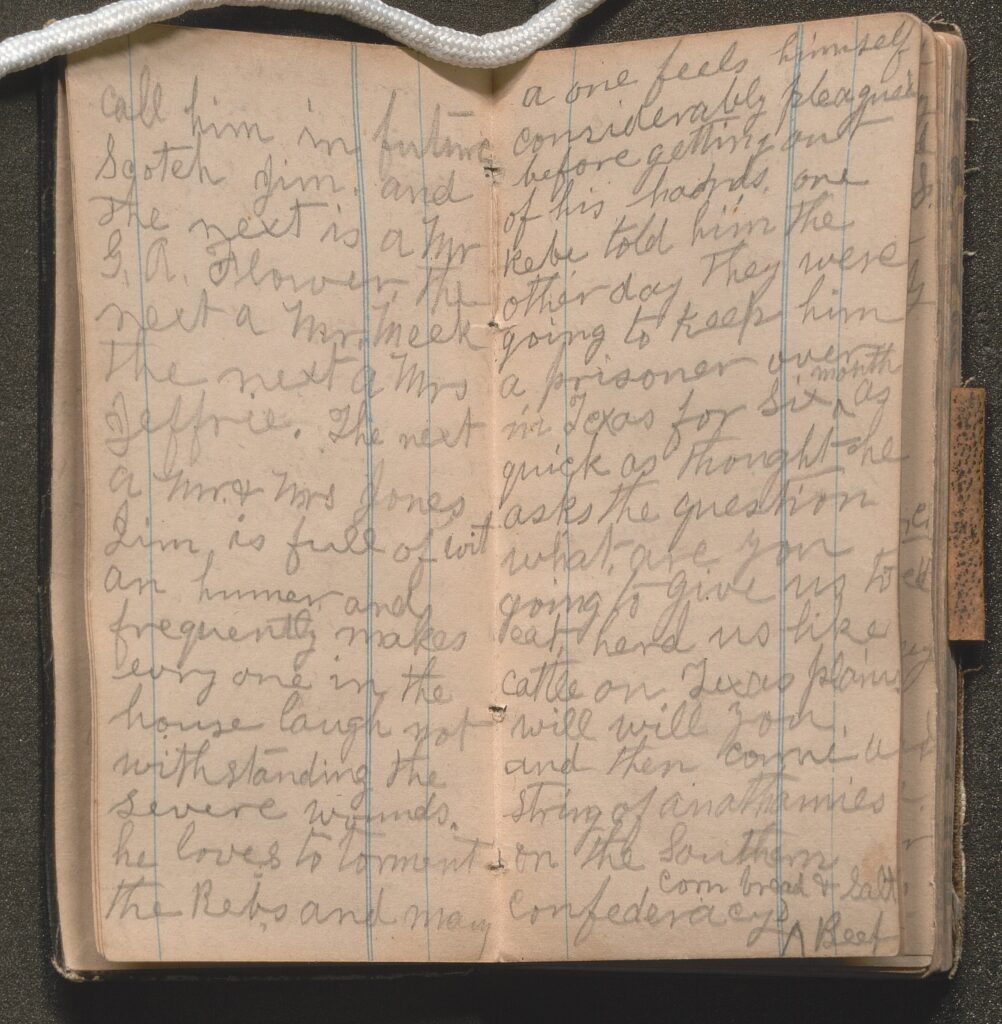 call him in future
Scotch Jim. and
the next is a Mr
G. A. Flower, the
next a Mr. Meek
the next a Mrs
Jeffrie. The next
a Mr. & Mrs Jones
Jim, is full of wit
an humer and
frequently makes
evry one in the
house laugh not
withstanding the
severe wounds.
he loves to torment
the Rebs and many
a one feels himself
considerably pleagued
before getting out
of his hands. one
Rebe told him the
other day they were
going to keep him
a prisoner over
in Texas for Six ^ month as
quick as thought he
asks the question
what are you
going to give us to
eat, herd us like
cattle on Texas plains
will will you,
and then comne a
string of anathamies
on the Southern
confederacy ^ corn bread & Salt
Beef